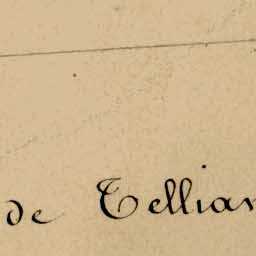 de Tellian